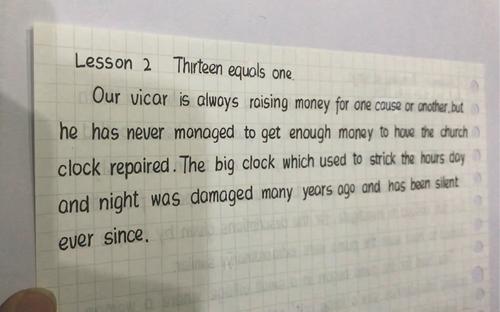 Lesson 2 Thirteen equals one.
Our vicar is always raising money for one cause or another, but
he has never managed to get enough money to have the church
clock repaired. The big clock which used to strick the hours day
and night was damaged many years ago and has been silent
ever since.